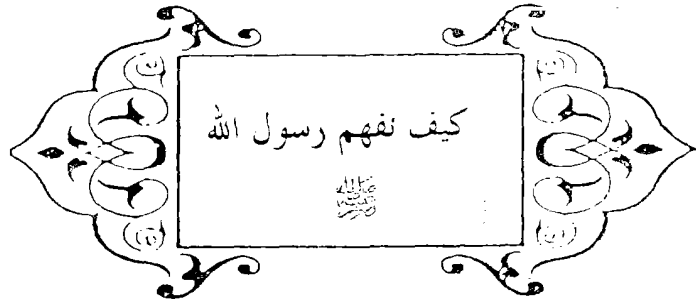 كيف نفهم رسول الله
ﷺ